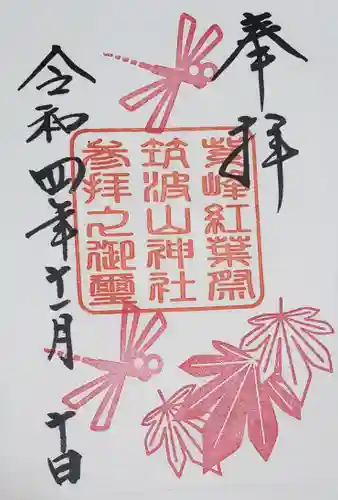 奉拝
紫峰紅葉祭
筑波山神社
参拝之御璽
令和四年十一月十日